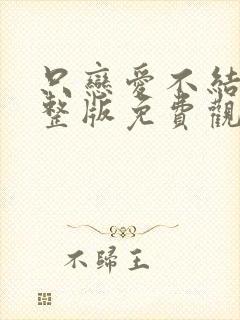 只戀愛不結
整版免費觀
不歸王